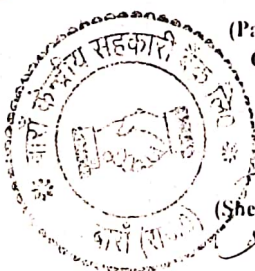 (Pa
बारां केन्द्रीय सहकारी बैंक लि०
बारां (राज०)
(She